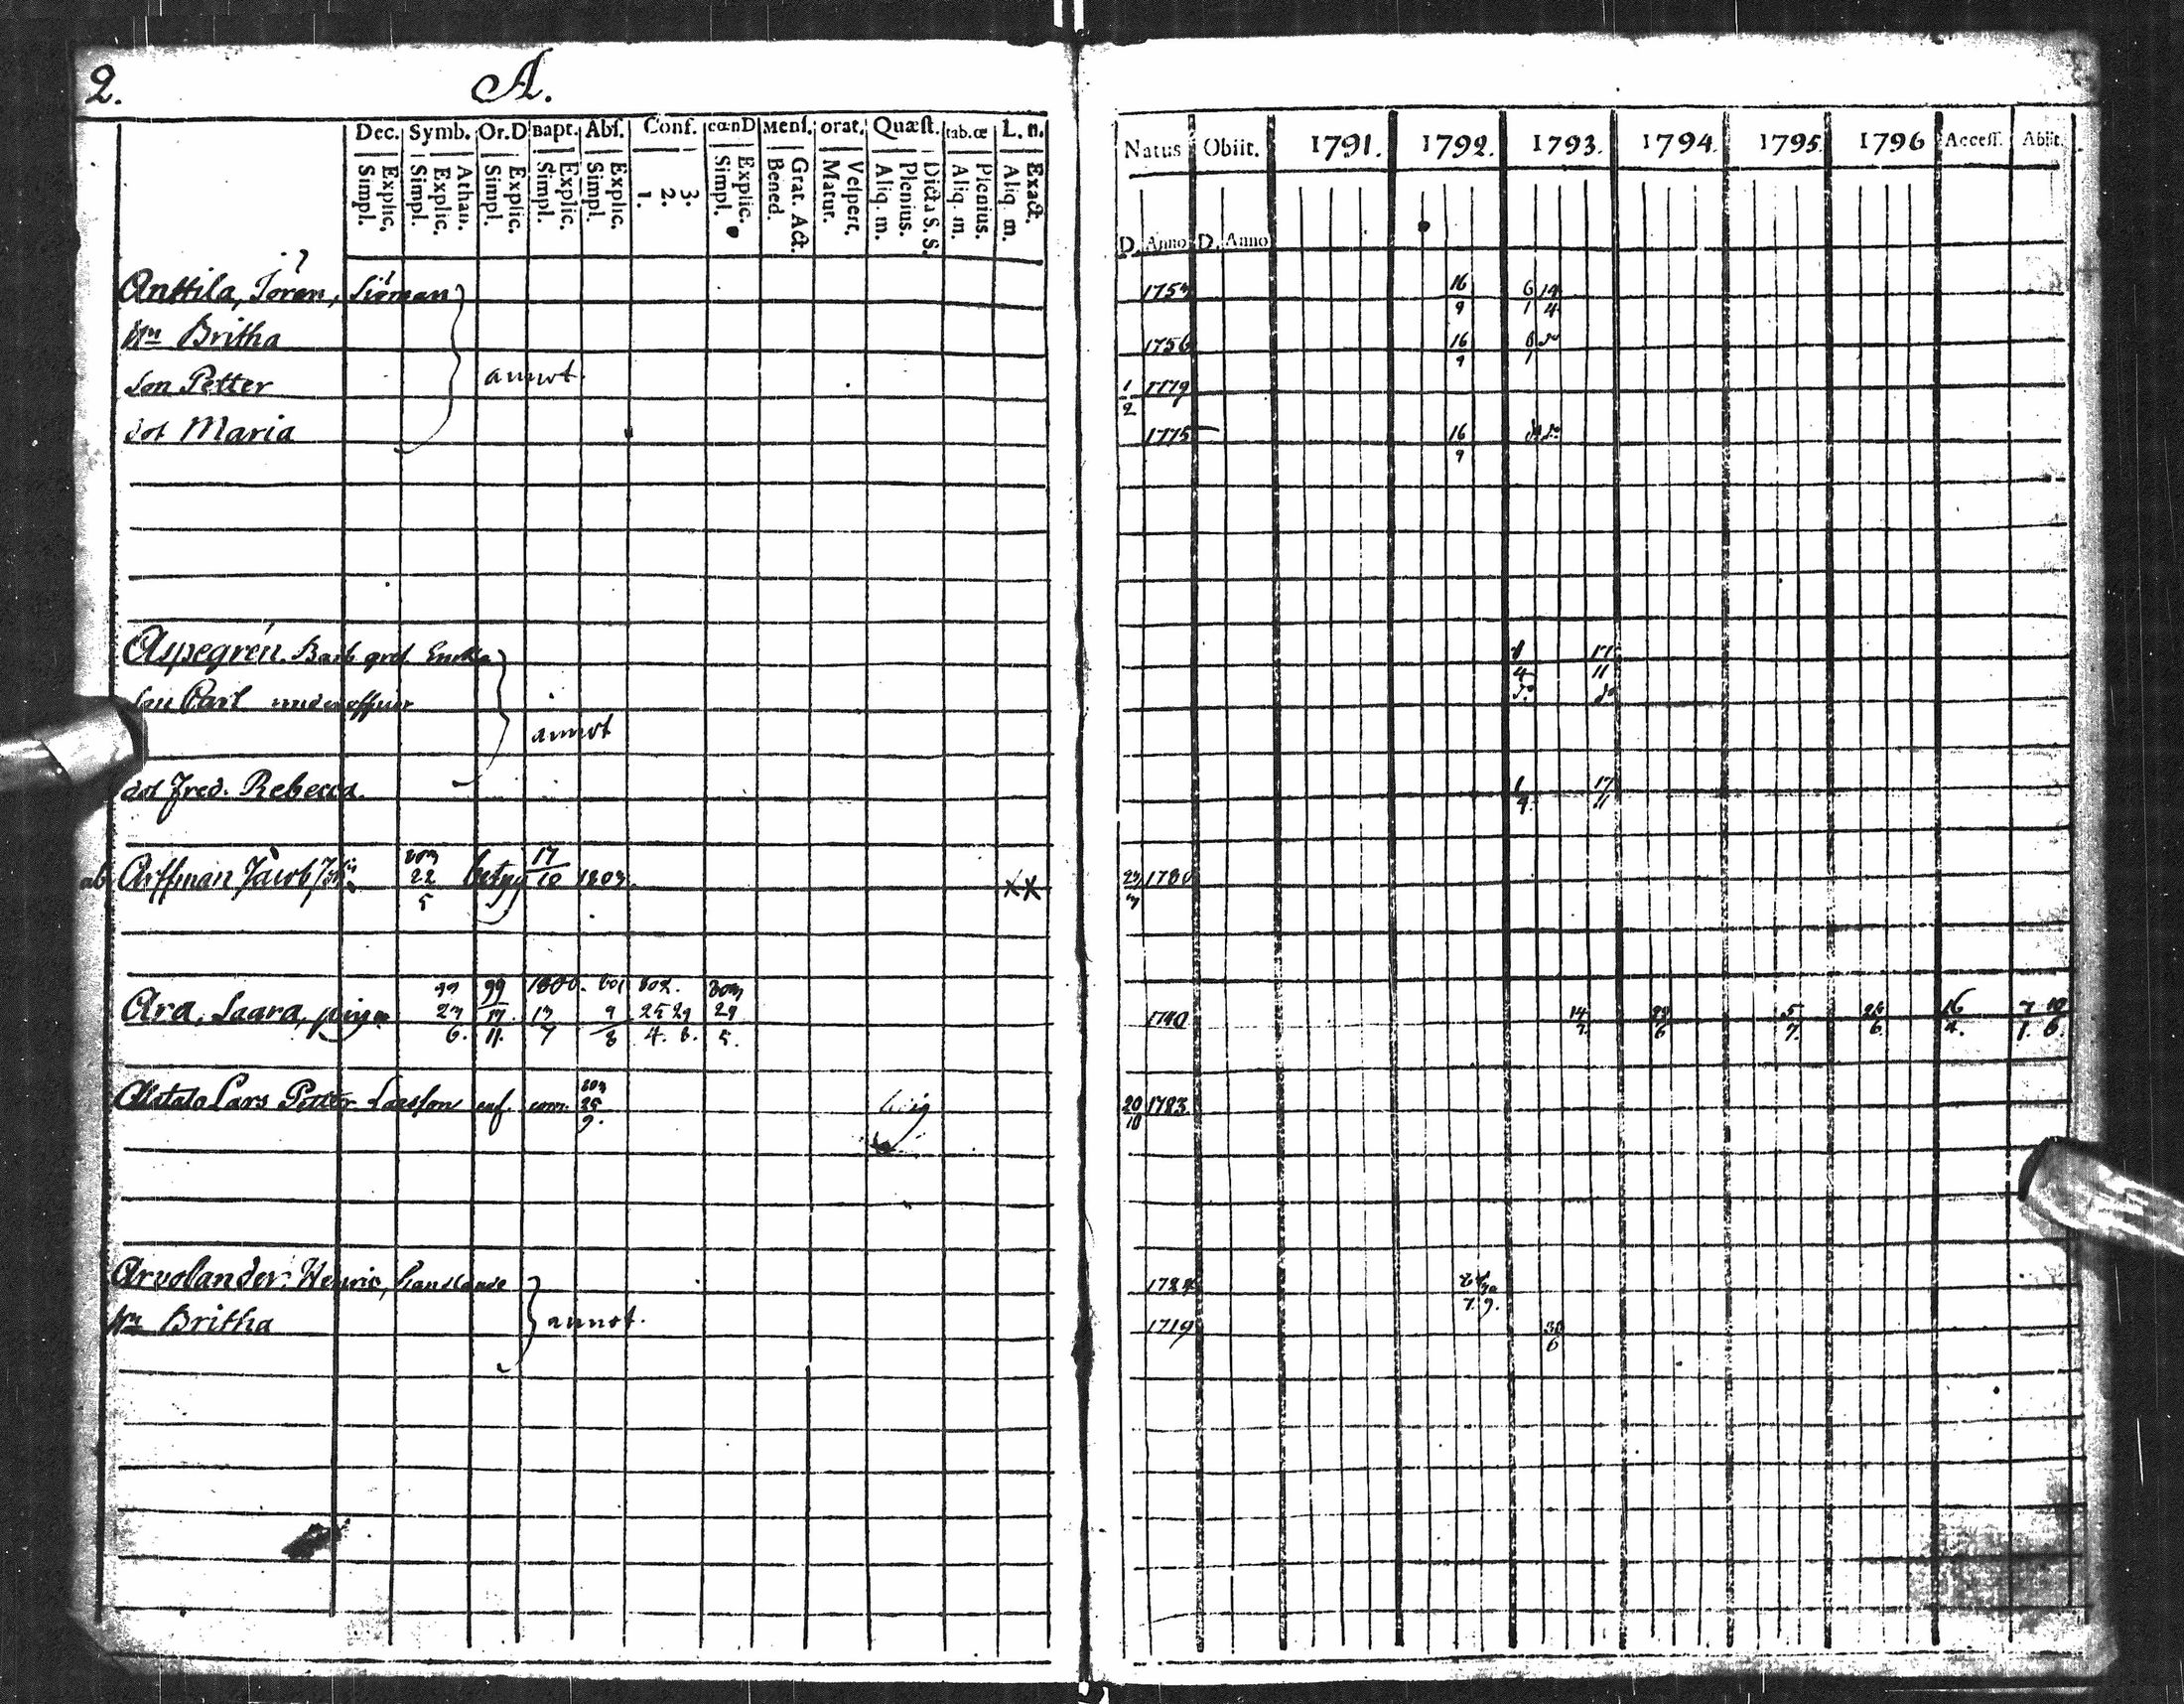 2. A.
Dec. Symb. Or.D Bapt. Abs. Conf. cœnD Mens. orat. Quæst. tab.œ L. n.
Simpl. Explic. Simpl. Explic. Athan. Simpl. Explic. Simpl. Explic. Simpl. Explic. 1. 2. 3. Simpl. Explic. Bened. Grat. Act. Matur. Vespert. Aliq. m. Plenius. Dicta S.S. Aliq. m. Plenius. Aliq. m. Exact.
Natus Obiit. 1791. 1792. 1793. 1794. 1795. 1796 Access. Abiit.
D. Anno D. Anno
Anttila, Jöran, 16 9 6 1 14 4
Hu Britha 1756 16 9 6 1 do
son Petter annot. 1 2 1779
dot Maria 1775 16 9 do do
Aspegrén. Barb gret. 4 17 11
son Carl underofficer do do
annot
dot Fred. Rebecca. 1 4 17 11
Jacob 22 5 betyg 17 10 1803. X X 1780
Ara, Saara, piga 99 23 6. 99 17 11. 1800. 13 7 801 9 8 802. 25 4. 29 6. 803 29 5. 1740 14 7. 29 6 5 7. 26 6. 16 7 1. 10 6.
Lars Petter Larsson 803 25 9. 20 10 1783.
Arvolander. Henric, 7. 9.
Hu Britha annot. 1719 30 6